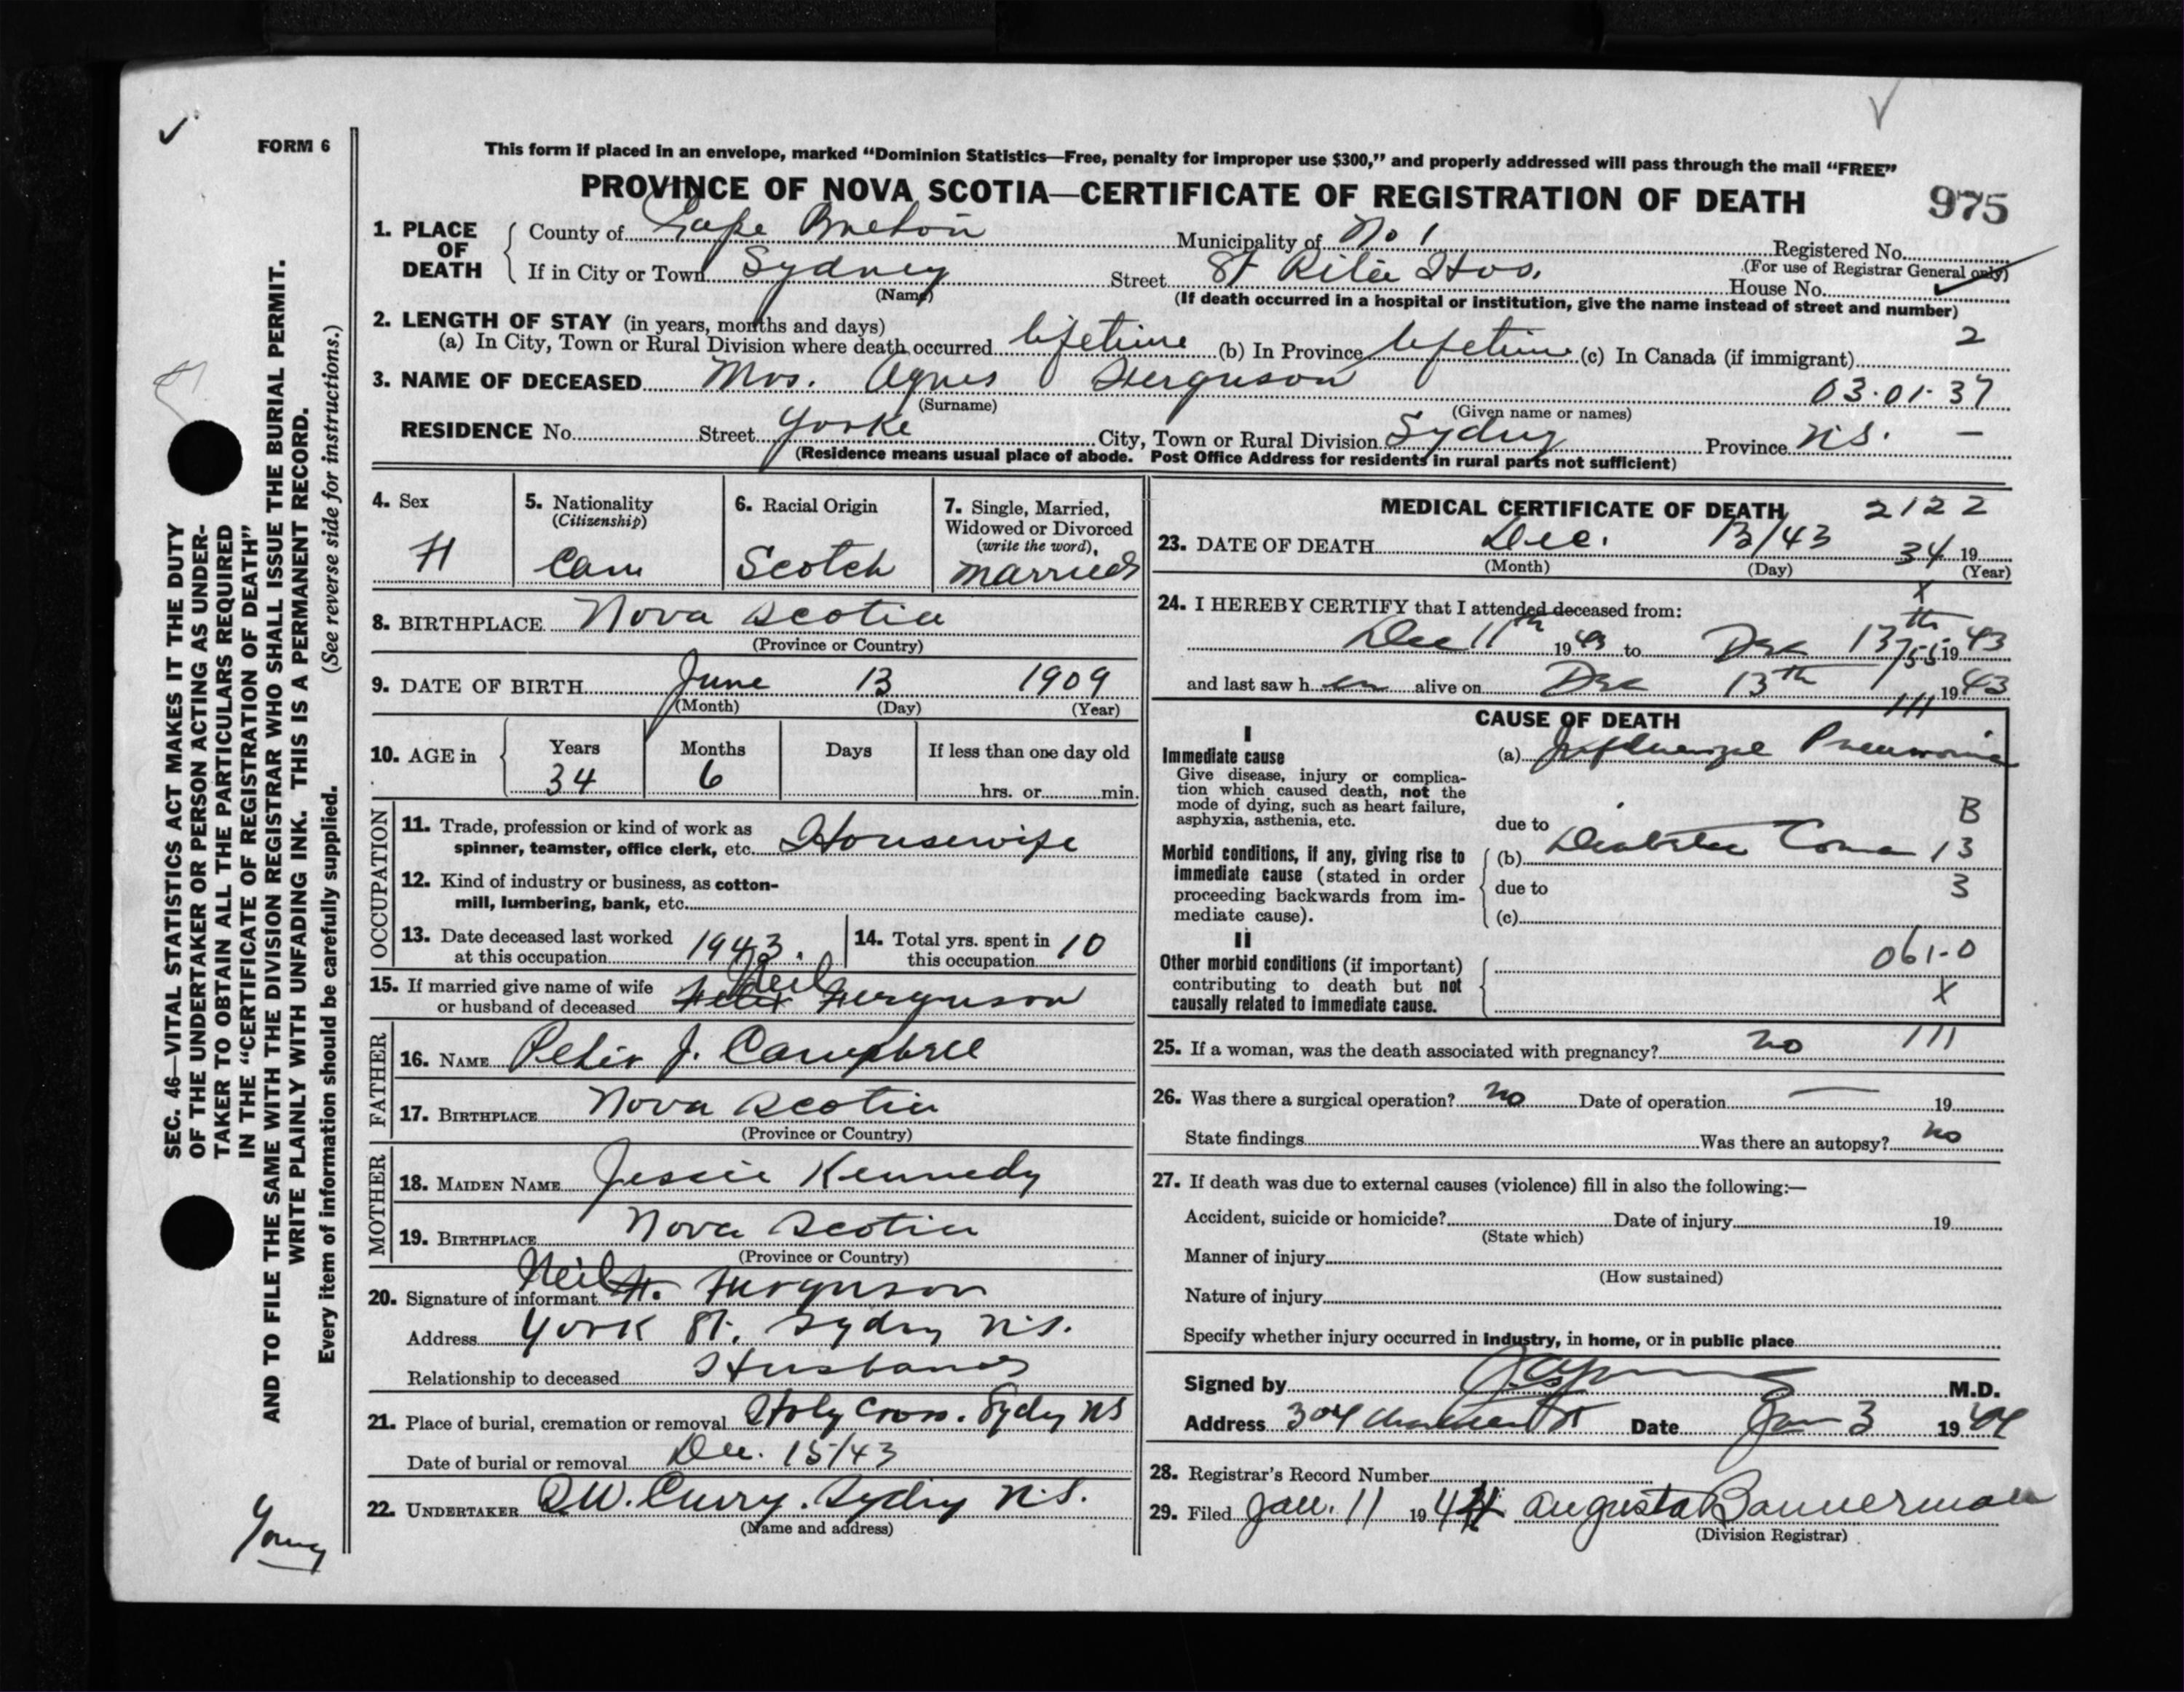 FORM 6
This form if placed in an envelope, marked “Dominion Statistics—Free, penalty for improper use $300,” and properly addressed will pass through the mail “FREE”
PROVINCE OF NOVA SCOTIA—CERTIFICATE OF REGISTRATION OF DEATH 975
1. PLACE OF DEATH County of Cape Breton Municipality of No 1 Registered No.
(For use of Registrar General only)
If in City or Town Sydney Street St Rita Hos. House No.
(Name) (If death occurred in a hospital or institution, give the name instead of street and number)
2. LENGTH OF STAY (in years, months and days)
(a) In City, Town or Rural Division where death occurred lifetime (b) In Province lifetime (c) In Canada (if immigrant) 2
3. NAME OF DECEASED Mrs. Agnes Ferguson 03·01·37
(Surname) (Given name or names)
RESIDENCE No. Street Yorke City, Town or Rural Division Sydney Province N.S. —
(Residence means usual place of abode. Post Office Address for residents in rural parts not sufficient)
4. Sex 5. Nationality 6. Racial Origin 7. Single, Married,
(Citizenship) Widowed or Divorced
(write the word),
Can Scotch married
8. BIRTHPLACE Nova Scotia
(Province or Country)
9. DATE OF BIRTH June 13 1909
(Month) (Day) (Year)
10. AGE in Years Months Days If less than one day old
34 6 hrs. or min.
OCCUPATION
11. Trade, profession or kind of work as
spinner, teamster, office clerk, etc. Housewife
12. Kind of industry or business, as cotton-
mill, lumbering, bank, etc.
13. Date deceased last worked
at this occupation 1943. 14. Total yrs. spent in
this occupation 10
15. If married give name of wife
or husband of deceased Neil Ferguson
FATHER
16. NAME Peter J. Campbell
17. BIRTHPLACE Nova Scotia
(Province or Country)
MOTHER
18. MAIDEN NAME Jessie Kennedy
19. BIRTHPLACE Nova Scotia
(Province or Country)
20. Signature of informant Neil H. Ferguson
Address York St. Sydney N.S.
Relationship to deceased Husband
21. Place of burial, cremation or removal Holy Cross. Sydney NS
Date of burial or removal Dec. 15/43
22. UNDERTAKER Curry. Sydney N.S.
(Name and address)
MEDICAL CERTIFICATE OF DEATH 2122
23. DATE OF DEATH Dec. 13/43 34 19
(Month) (Day) (Year)
X
24. I HEREBY CERTIFY that I attended deceased from:
Dec 11th 1943 to Dec 13th 1943
and last saw h er alive on Dec 13th 1943
CAUSE OF DEATH
I
Immediate cause (a) Influenzal Pneumonia
Give disease, injury or complica-
tion which caused death, not the
mode of dying, such as heart failure,
asphyxia, asthenia, etc.
B
due to
Morbid conditions, if any, giving rise to
immediate cause (stated in order
proceeding backwards from im-
mediate cause).
(b) Diabetic Coma 13
due to 3
(c)
II
Other morbid conditions (if important)
contributing to death but not
causally related to immediate cause.
061-0
X
25. If a woman, was the death associated with pregnancy? no 111
26. Was there a surgical operation? no Date of operation — 19
State findings Was there an autopsy? no
27. If death was due to external causes (violence) fill in also the following:—
Accident, suicide or homicide? Date of injury 19
(State which)
Manner of injury
(How sustained)
Nature of injury
Specify whether injury occurred in industry, in home, or in public place
Signed by M.D.
Address 304 Date Jan 3 1944
28. Registrar’s Record Number
29. Filed Jan. 11 1944 Augusta Bannerman
(Division Registrar)
SEC. 46—VITAL STATISTICS ACT MAKES IT THE DUTY
OF THE UNDERTAKER OR PERSON ACTING AS UNDER-
TAKER TO OBTAIN ALL THE PARTICULARS REQUIRED
IN THE “CERTIFICATE OF REGISTRATION OF DEATH”
AND TO FILE THE SAME WITH THE DIVISION REGISTRAR WHO SHALL ISSUE THE BURIAL PERMIT.
WRITE PLAINLY WITH UNFADING INK. THIS IS A PERMANENT RECORD.
Every item of information should be carefully supplied. (See reverse side for instructions.)
Young